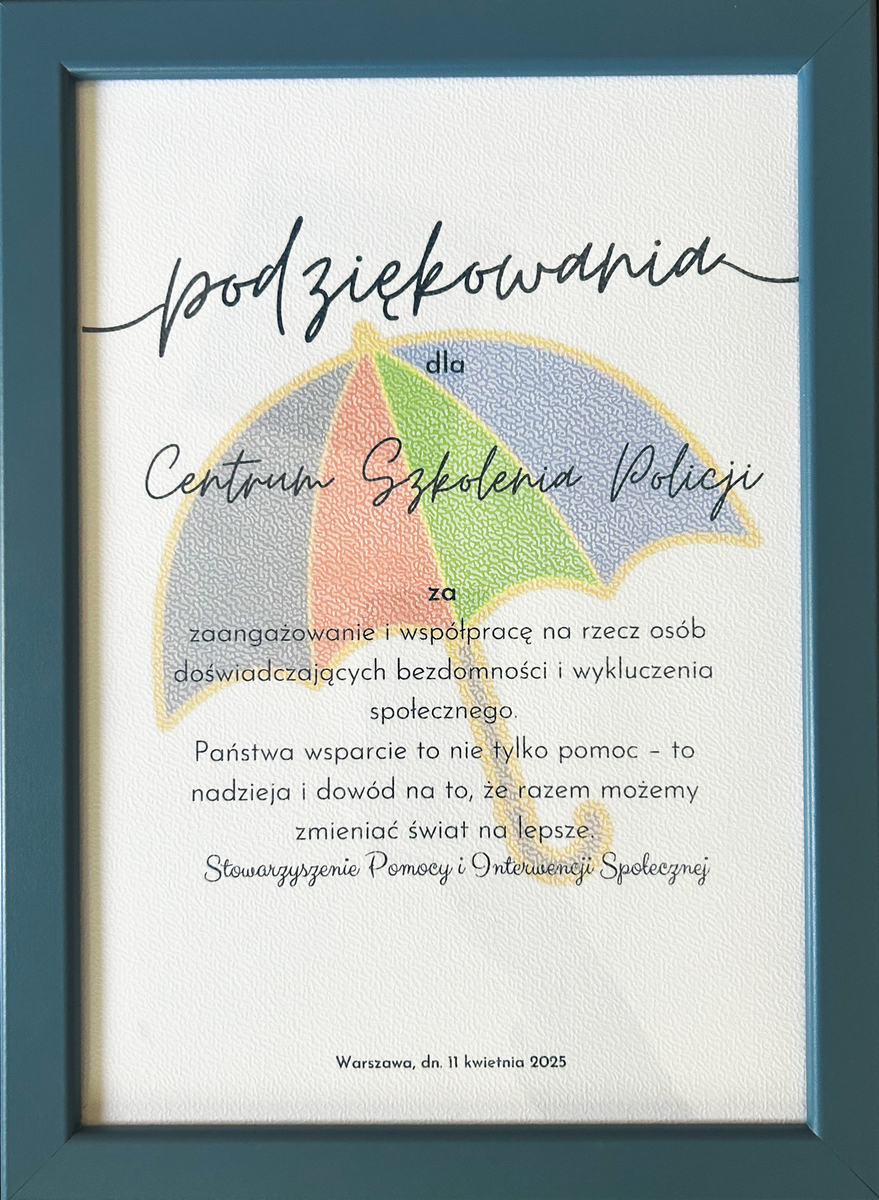 podziękowania
dla
Centrum Szkolenia Policji
za
zaangażowanie i współpracę na rzecz osób
doświadczających bezdomności i wykluczenia
społecznego.
Państwa wsparcie to nie tylko pomoc – to
nadzieja i dowód na to, że razem możemy
zmieniać świat na lepsze.
Stowarzyszenie Pomocy i Interwencji Społecznej
Warszawa, dn. 11 kwietnia 2025